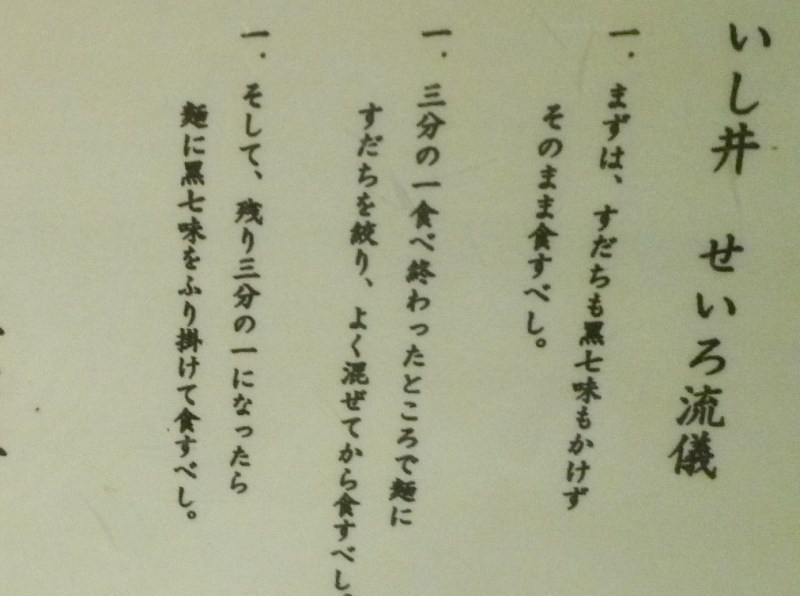 いし井　せいろ流儀
一．まずは、すだちも黒七味もかけず
そのまま食すべし。
一．三分の一食べ終わったところで麺に
すだちを絞り、よく混ぜてから食すべし。
一．そして、残り三分の一になったら
麺に黒七味をふり掛けて食すべし。